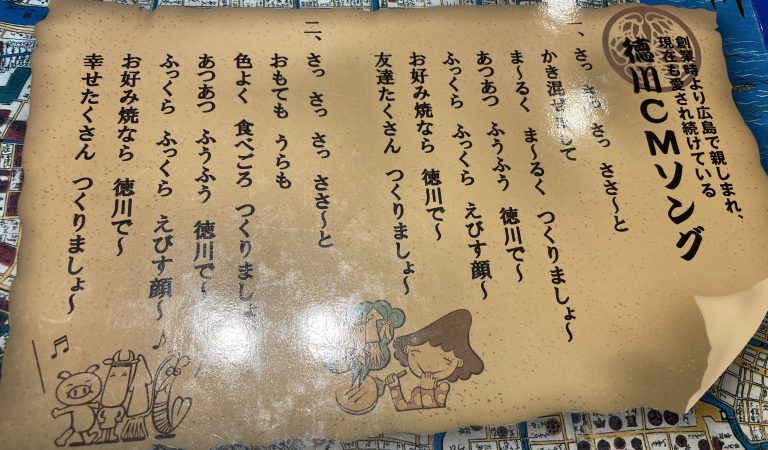 創業時より広島で親しまれ、
現在も愛され続けている
徳川CMソング
一、さっ さっ さっ ささ〜と
かき混ぜまして
ま〜るく ま〜るく つくりましょ〜
あつあつ ふうふう 徳川で〜
ふっくら ふっくら えびす顔〜
お好み焼なら 徳川で〜
友達たくさん つくりましょ〜
二、さっ さっ さっ ささ〜と
おもても うらも
色よく 食べごろ つくりましょ
あつあつ ふうふう 徳川で〜
ふっくら ふっくら えびす顔〜
お好み焼なら 徳川で〜
幸せたくさん つくりましょ〜